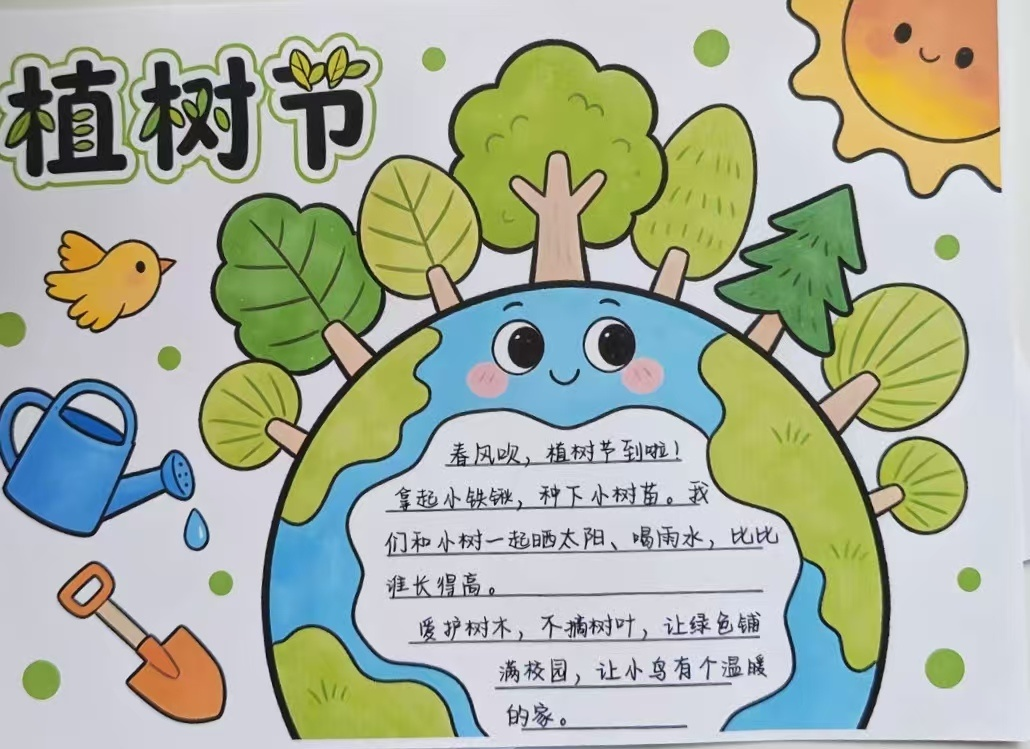 植树节
春风吹，植树节到啦！
拿起小铁锹，种下小树苗。我
们和小树一起晒太阳、喝雨水，比比
谁长得高。
爱护树木，不摘树叶，让绿色铺
满校园，让小鸟有个温暖
的家。